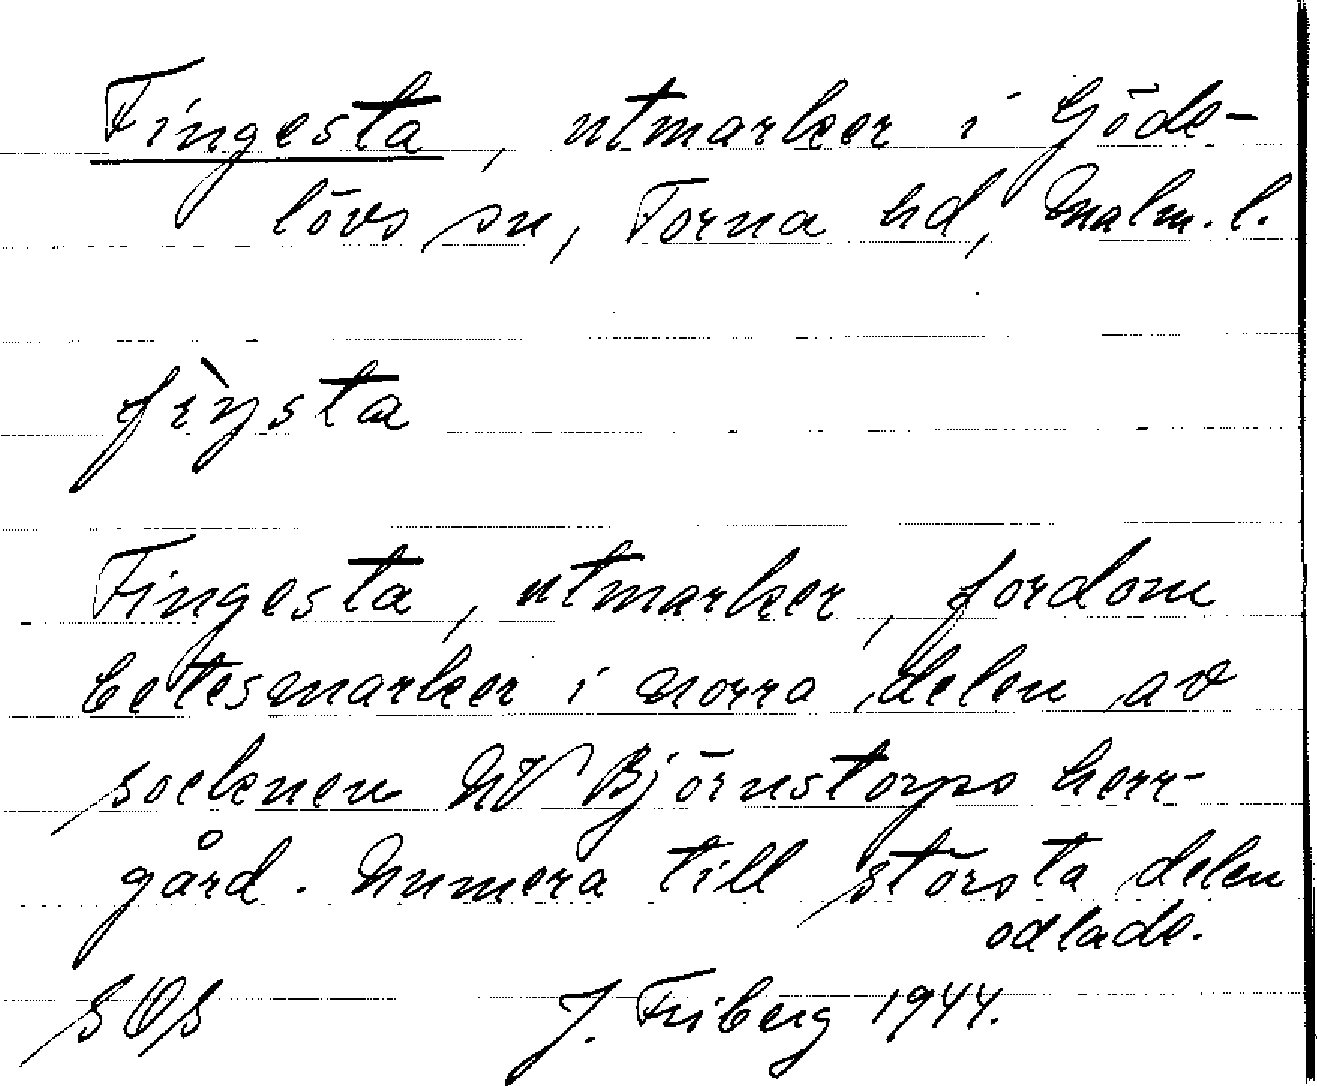 Fingesta, utmarker i Göde-
lövs sn, Torna hd, Malm. l.
fìŋsta
Fingesta, utmarker, fordom
betesmarker i norra delen av
socknen NV Björnstorps herr-
gård. Numera till största delen
odlade.
SOS J. Friberg 1944.